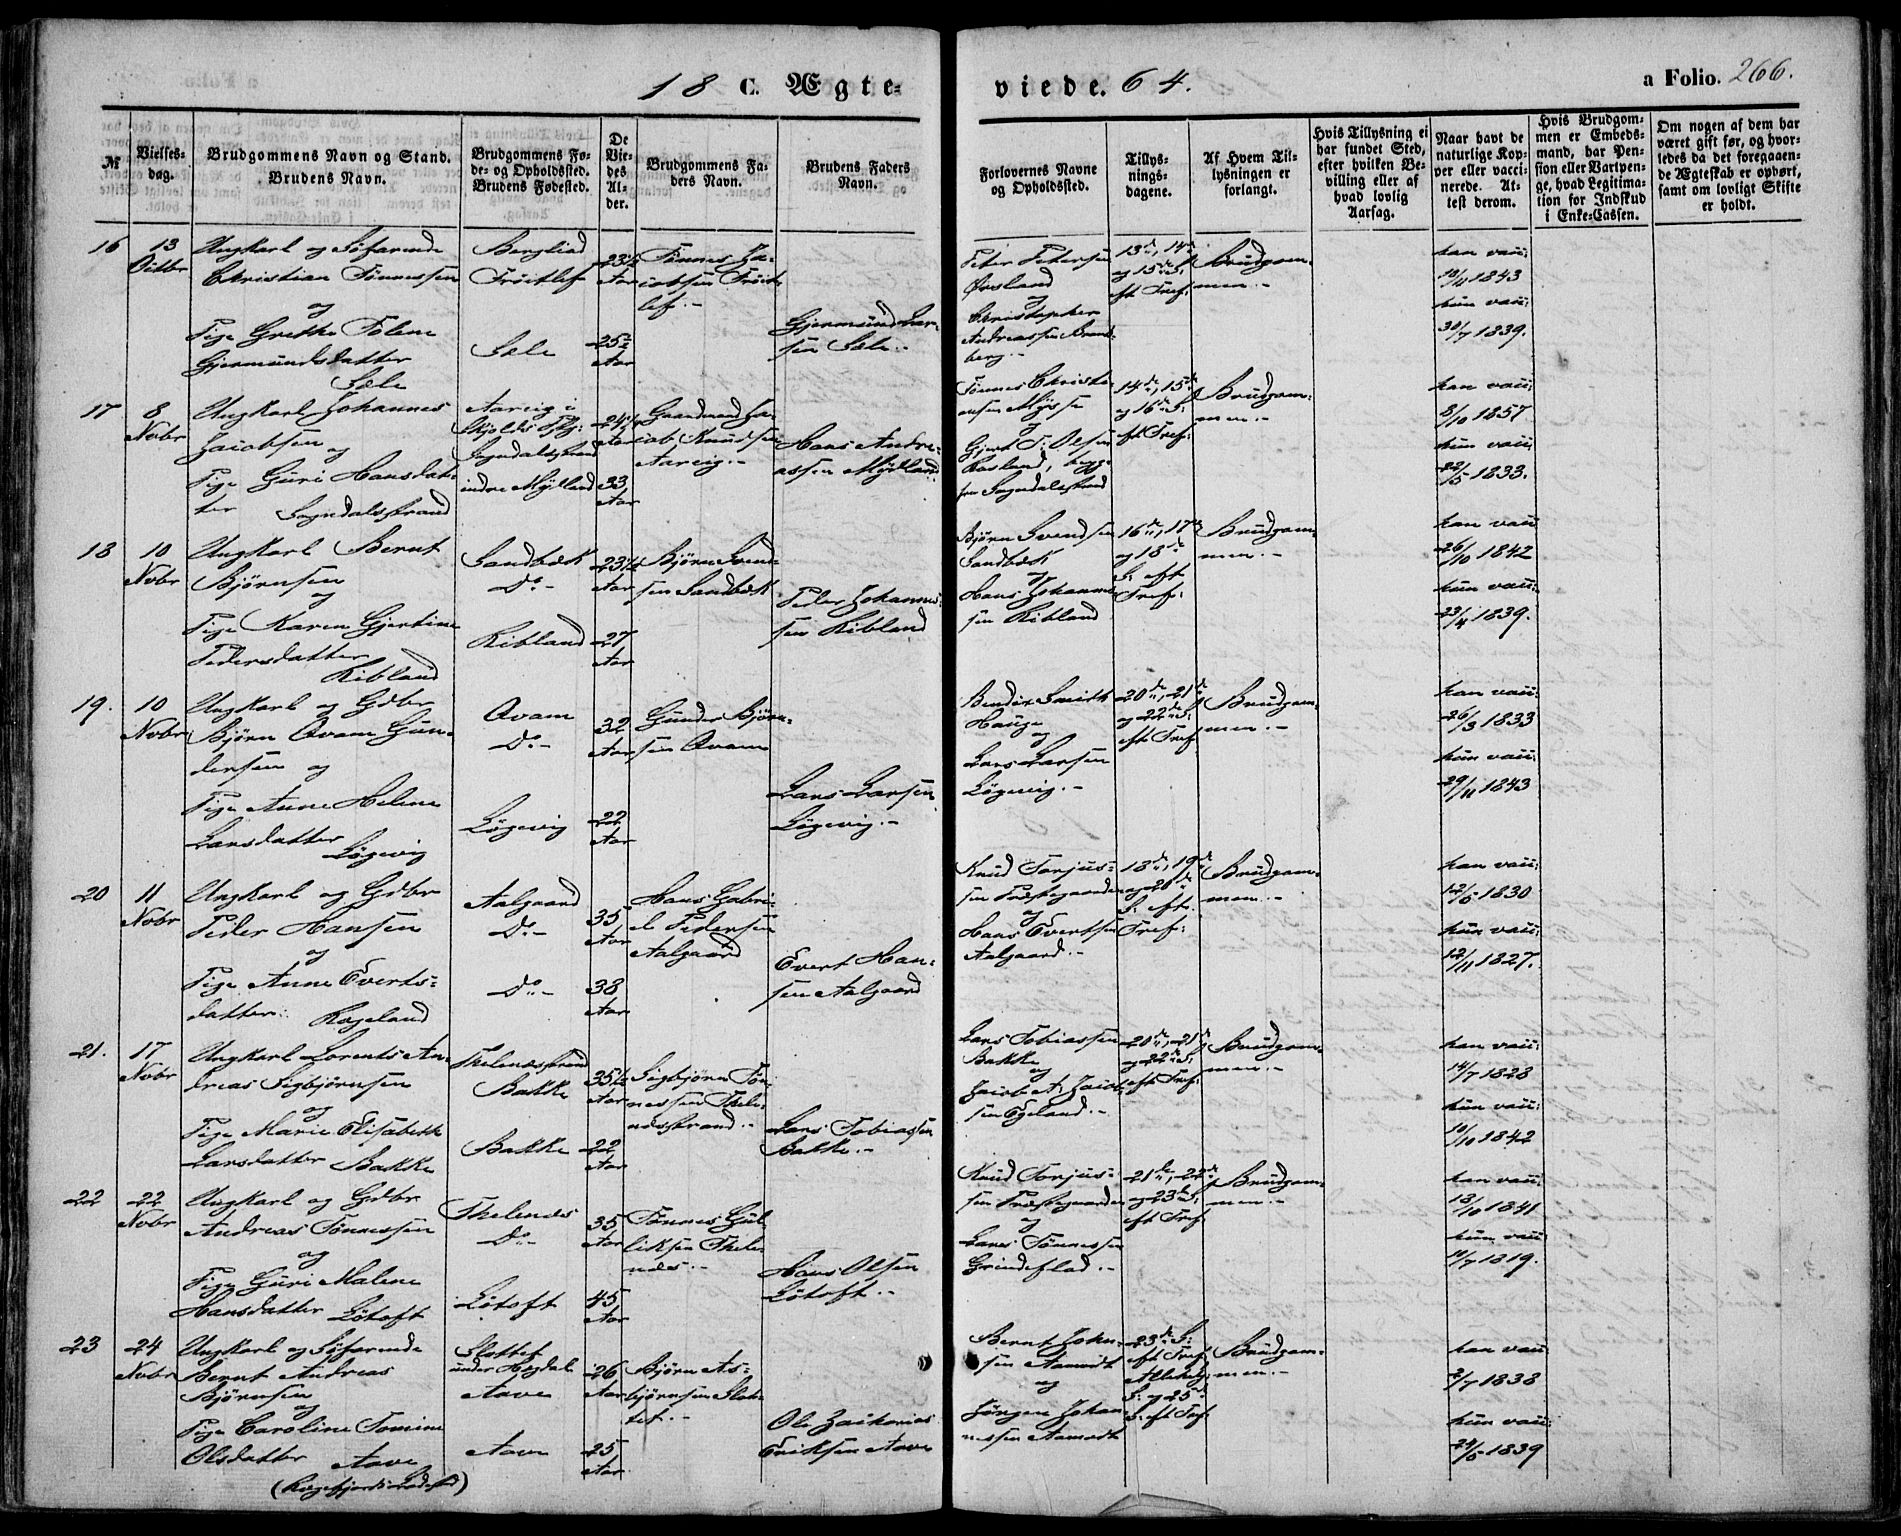 18 C. Ægte-
viede. 64.
a Folio. 266.
№
Vielses-
dag.
Brudgommens Navn og Stand.
Brudens Navn.
Brudgommens Fø-
de- og Opholdssted.
Brudens Fødested.
De
Vie-
des
Al-
der.
Brudgommens Fa-
ders Navn.
Brudens Faders
Navn.
Forlovernes Navne
og Opholdssted.
Tillys-
nings-
dagene.
Af Hvem Til-
lysningen er
forlangt.
Hvis Tillysning ei
har fundet Sted,
efter hvilken Be-
villing eller af
hvad lovlig
Aarsag.
Naar havt de
naturlige Kop-
per eller vacci-
nerede. At-
test derom.
Hvis Brudgom-
men er Embeds-
mand, har Pen-
sion eller Vartpen-
ge, hvad Legitima-
tion for Indskud
i Enke-Cassen.
Om nogen af dem har
været gift før, og hvor-
ledes da det foregaaen-
de Ægteskab er ophørt,
samt om lovligt Skifte
er holdt.
16
13
Octbr
Ungkarl og Søfarende
Christian Tønnessen
og
Pige Grethe Tolene
Gjermundsdatter
Sæle
Berglied
Frøitlef
Sæle
23½
Aar
25
Aar
Tønnes Ja-
cobsen Frøit-
lef.-
Gjermund Lar-
sen Sæle.-
Peter Petersen
Ørsland
og
Christopher
Andreassen
berg.-
13de, 14de
og 15de S:
eft Tref:
Brudgom-
men.-
han vacc:
1843
hun vacc:
30/7 1839.
17
8
Novbr
Ungkarl Johannes
Jacobsen
og
Pige Guri Hansdat-
ter Sogndalsstrand
Aarvig i
Skjolds
Sogndalsstrand
indre Mydland
24½
Aar
33
Aar
Gaardmand Ja-
cob Knudsen
Aarvig.-
Hans Andre-
assen Mydland
Tønnes Christi-
ansen Mysse
og
Gjert T. Olsen
Rosland, begge
fra Sogndalsstrand
14de, 15de
og 16de S:
eft Tref:
Brudgom-
men.-
han vacc:
8/10 1857
hun vacc:
22/5 1833.
18
10
Novbr
Ungkarl Bernt
Bjørnsen
og
Pige Karen Gjertine
Pedersdatter
Ribland
Sandbæk
Do-
Ribland
23½
Aar
27
Aar
Bjørn Svend-
sen Sandbæk
Peder Johannes-
sen Ribland
Bjørn Svendsen
Sandbæk
og
Hans Johannes-
sen Ribland
16de, 17de
og 18de
S: eft
Tref:
Brudgom-
men.-
han vacc
26/10 1842
hun vacc:
23/4 1839.
19.
10
Novbr
Ungkarl og Gdbr
Bjørn Qvam Gun-
dersen og
Pige Anne Helene
Larsdatter
Løgevig
Qvam
Do-
Løgevig
32
Aar
22
Aar
Gunder Bjørn-
sen Qvam
Lars Larsen
Løgevig.-
Bendix Smith
Hauge
og
Lars Larsen
Løgevig.-
20de, 21de
og 22de S:
eft Tref
Brudgom-
men.-
han vacc:
26/3 1833
hun vacc:
29/11 1843
20
11
Novbr
Ungkarl og Gdbr
Peder Hansen
og
Pige Anne Everts-
datter: Rægeland
Aalgaard
Do-
Do-
35
Aar
38
Aar
Hans Gabri-
el Pedersen
Aalgaard
Evert Han-
sen Aalgaard
Knud Torjus-
sen Præstegaarden
og
Hans Evertsen
Aalgaard.-
18de, 19de
og 20de
S: eft.
Tref:
Brudgom-
men.-
han vacc:
12/6 1830
hun vacc:
12/11 1827.
21.
17
Novbr
Ungkarl Lorents An-
dreas Sigbjørnsen
og
Pige Marie Elisabeth
Larsdatter Bakke
Thelenæsstrand
Bakke
Bakke
35½
Aar
22
Aar
Sigbjørn Tøn-
nessen Thele-
næsstrand.-
Lars Tobiassen
Bakke.-
Lars Tobiassen
Bakke
og
Jacob A. Jacob-
sen Egeland.-
20de, 21de
og 22de S:
eft Tref:
Brudgom-
men.-
han vacc:
14/7 1828
hun vacc:
10/10 1842
22
22
Novbr
Ungkarl og Gdbr
Andreas Tønnessen
og
Pige Guri Malene
Hansdatter Løtoft
Thelenæs
Do-
Løtoft
35
Aar
45
Aar
Tønnes Gul-
liksen Thele-
næs.-
Hans Olsen
Løtoft.-
Knud Torjus-
sen Præstegaarden
og
Lars Tønnessen
Grindeflad.-
21de, 22de
og 23de S:
eft Tref
Brudgom-
men.-
han vacc:
13/10 1841
hun vacc
10/7 1819.
23
24
Novbr
Ungkarl og Søfarende
Bernt Andreas
Bjørnsen
og
Pige Caroline Tomine
Olsdatter Aave
(Rægefjords Ladested)
Slottet
under Hegdal
Aave
Aave
26
Aar
25
Aar
Bjørn As-
bjørnsen Slot-
tet.-
Ole Zacharias
Eriksen Aave
Bernt John-
sen Aamodt
og
Jørgen Johan-
nessen Aamodt
23de S:
eft Tref
Allehelg:
S: og 25de
S: eft Tref:
Brudgom-
men.-
han vacc
2/7 1838
hun vacc:
24/6 1839